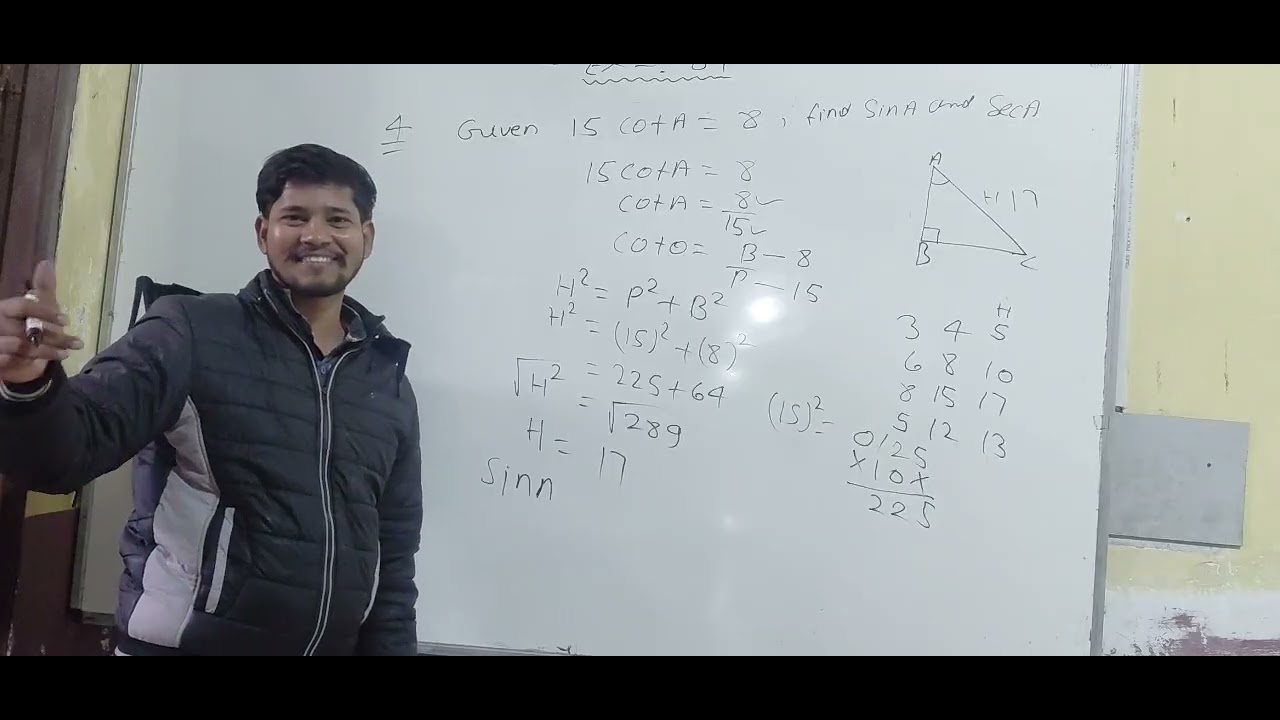 4 Given 15 cotA = 8, find SinA and SecA
15 cotA = 8
cotA = 8
15
cotθ = B — 8
P — 15
H² = P² + B²
H² = (15)² + (8)²
√H² = 225 + 64
= √289
H = 17
Sinn
A
H 17
B
C
H
3 4 5
6 8 10
8 15 17
5 12 13
(15)² =
0125
×10×
225